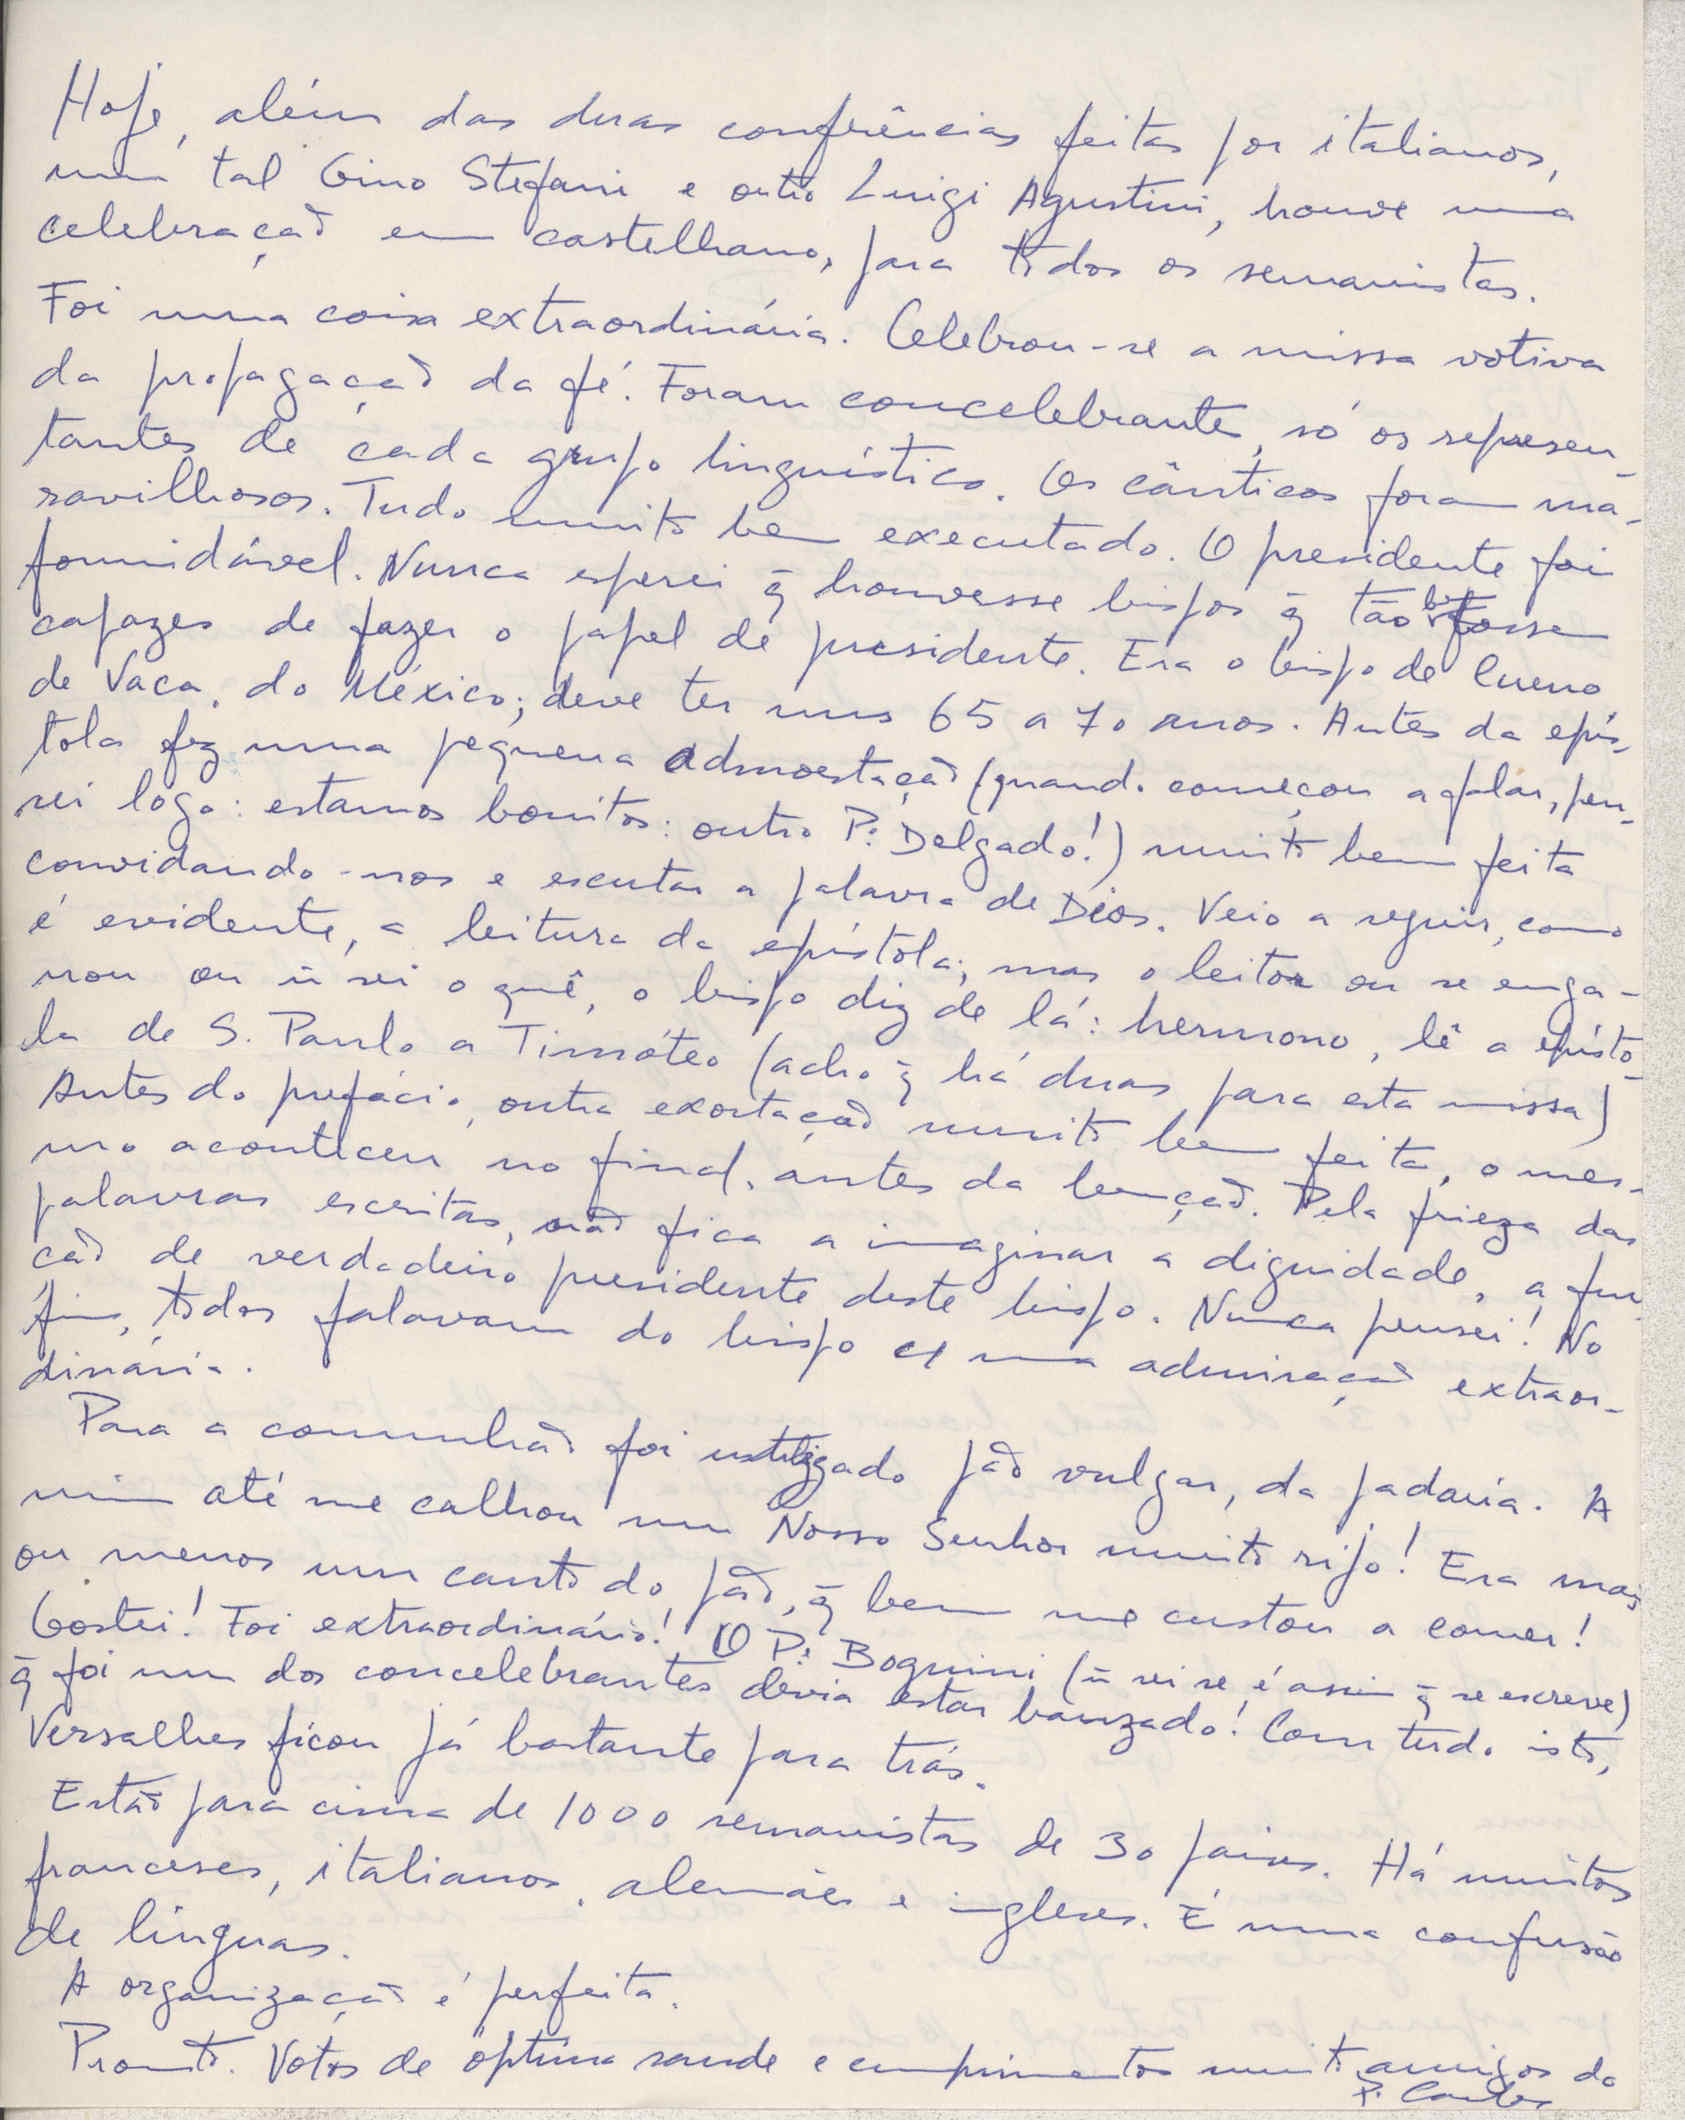 Hoje, além das duas conferências feitas por italianos,
um tal Gino Stefani e outro Luigi Agustini, houve uma
celebração em castelhano, para todos os semanistas.
Foi uma coisa extraordinária. Celebrou-se a missa votiva
da propagação da fé. Foram concelebrantes, só os represen-
tantes de cada grupo linguístico. Os cânticos foram ma-
ravilhosos. Tudo muito bem executado. O presidente foi
formidável. Nunca esperei q̃ houvesse bispos q̃ tão bem fossem
capazes de fazer o papel de presidente. Era o bispo de Cuerno
de Vaca, do México; deve ter uns 65 a 70 anos. Antes da epís-
tola fez uma pequena admoestação (quando começou a falar, pen-
sei logo: estamos bonitos: outro P.e Delgado!) muito bem feita
convidando-nos e escutar a palavra de Dios. Veio a seguir, como
é evidente, a leitura da epístola; mas o leitor ou se enga-
nou ou ñ sei o quê, o bispo diz de lá: hermono, lê a epísto-
la de S. Paulo a Timóteo (acho q̃ há duas para esta missa)
Antes do prefácio, outra exortação muito bem feita, o mes-
mo aconteceu no final, antes da benção. Pela frieza das
palavras escritas, não fica a imaginar a dignidade, a fun-
ção de verdadeiro presidente deste bispo. Nunca pensei! No
fim, todos falavam do bispo c/ uma admiração extraor-
dinária.
Para a comunhão foi utilizado pão vulgar, da padaria. A
mim até me calhou um Nosso Senhor muito rijo! Era mais
ou menos um canto do pão, q̃ bem me custou a comer!
Gostei! Foi extraordinário! O P.e Boguini (ñ sei se é assim q̃ se escreve)
q̃ foi um dos concelebrantes devia estar banzado! Com tudo isto,
Versalhes ficou já bastante para trás.
Estão para cima de 1000 semanistas de 30 países. Há muitos
franceses, italianos, alemães e ingleses. É uma confusão
de línguas.
A organização é perfeita.
Pronto. Votos de óptima saude e cumprimentos muito amigos do
P. Carlos